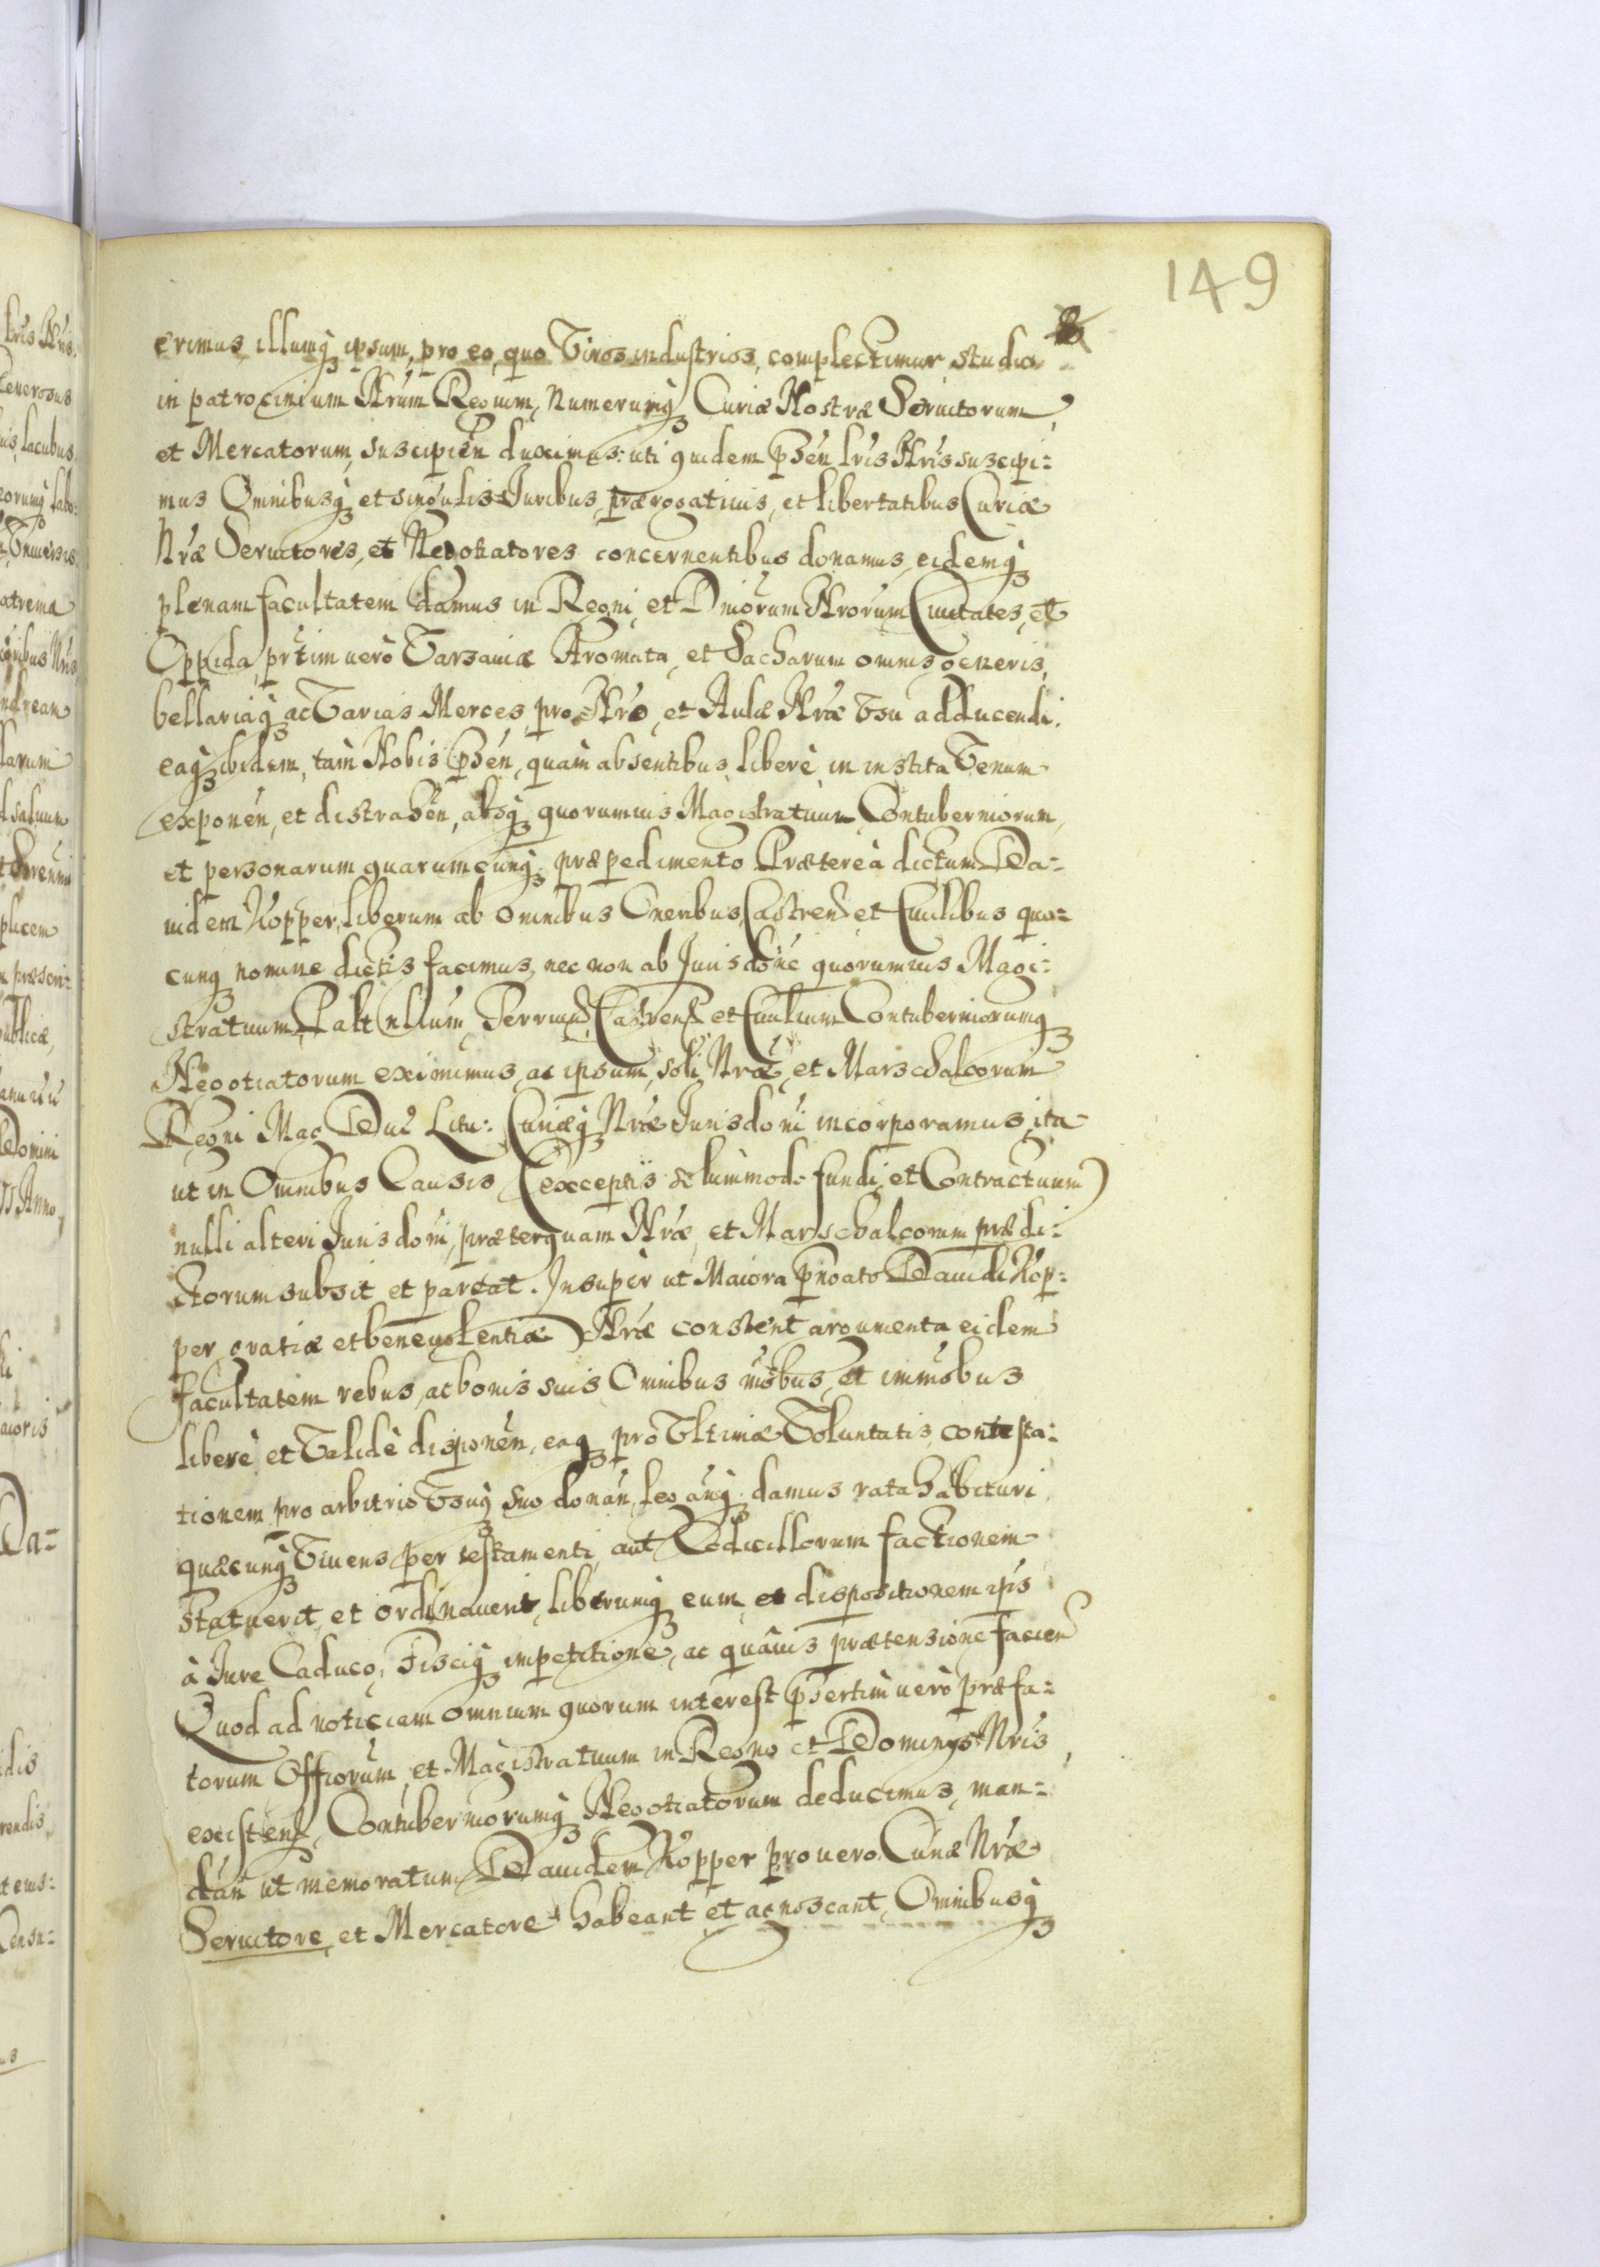 149
erimus, illumq ipsum, pro eo, quo Viros industrios, complectimur studio
in patrocinium Nrum Regium, Numerumq Curiæ Nostræ Seruitorum,
et Mercatorum, suscipien duximus: uti quidem pñsen lris Nris suscipi=
mus Omnibusq et singulis Juribus, prærogatiuis, et libertatibus Curiæ
Nræ Seruitores, et Negotiatores concernentibus donamus, eidemq
plenam facultatem damus in Regni, et Dniorum Nrorum Ciuitates, et
Oppida, prtim uerò Varsauiæ Aromata, et Sacharum omnis generis,
bellariaq ac Varias Merces, pro Nro, et Aulæ Nræ Vsu adducendi.
eaq ibidem, tàm Nobis pñsen, quàm absentibus, liberè in instita Venum
exponen, et distrahen, absq quorumuis Magistratuum Contuberniorum,
et personarum quarumcunq præpedimento. Prætereà dictum Da=
uidem Kopper, liberum ab omnibus Oneribus Castren et Ciuilibus quo=
cunq nomine dictis facimus, nec non ab Jurisdone quorumuis Magi=
stratuum, Castren et Ciuilium Contuberniorumq
Negotiatorum eximimus, ac ipsum, soli Nræ, et Marschalcorum
Regni Mag Duc Litu: Curiæq Nræ Jurisdoni incorporamus, ita
ut in Omnibus Causis (exceptis duntaxat fundi, et Contractuum)
nulli alteri Jurisdoni, præterquam Nræ, et Marschalcorum prædi=
ctorum subsit et pareat. Insuper ut Maiora pnoato Dauidi Kop=
per, gratiæ et beneuolentiæ Nræ constent argumenta eidem
facultatem rebus, ac bonis suis Omnibus mobus, et immobus
liberè et Validè disponen, eaq pro Vltimæ Voluntatis contesta=
tionem pro arbitrio Vsuq suo donan, leganiq damus rata habituri
quæcunq Viuens per testamenti, aut Codicillorum factionem
statuerit, et ordinauerit, liberumq eum, et dispositionem ipis
à Jure Caduco, Fisciq impetitione, ac quâuis prætensione facien
Quod ad noticiam omnium quorum interest psertim uerò præfa=
torum Offiorum, et Magistratuum in Regno et Dominys Nris,
existen, Contuberniorumq Negotiatorum deducimus, man=
dan ut memoratum Dauidem Kopper pro uero Curiæ Nræ
Seruitore, et Mercatore habeant, et agnoscant, Omnibusq